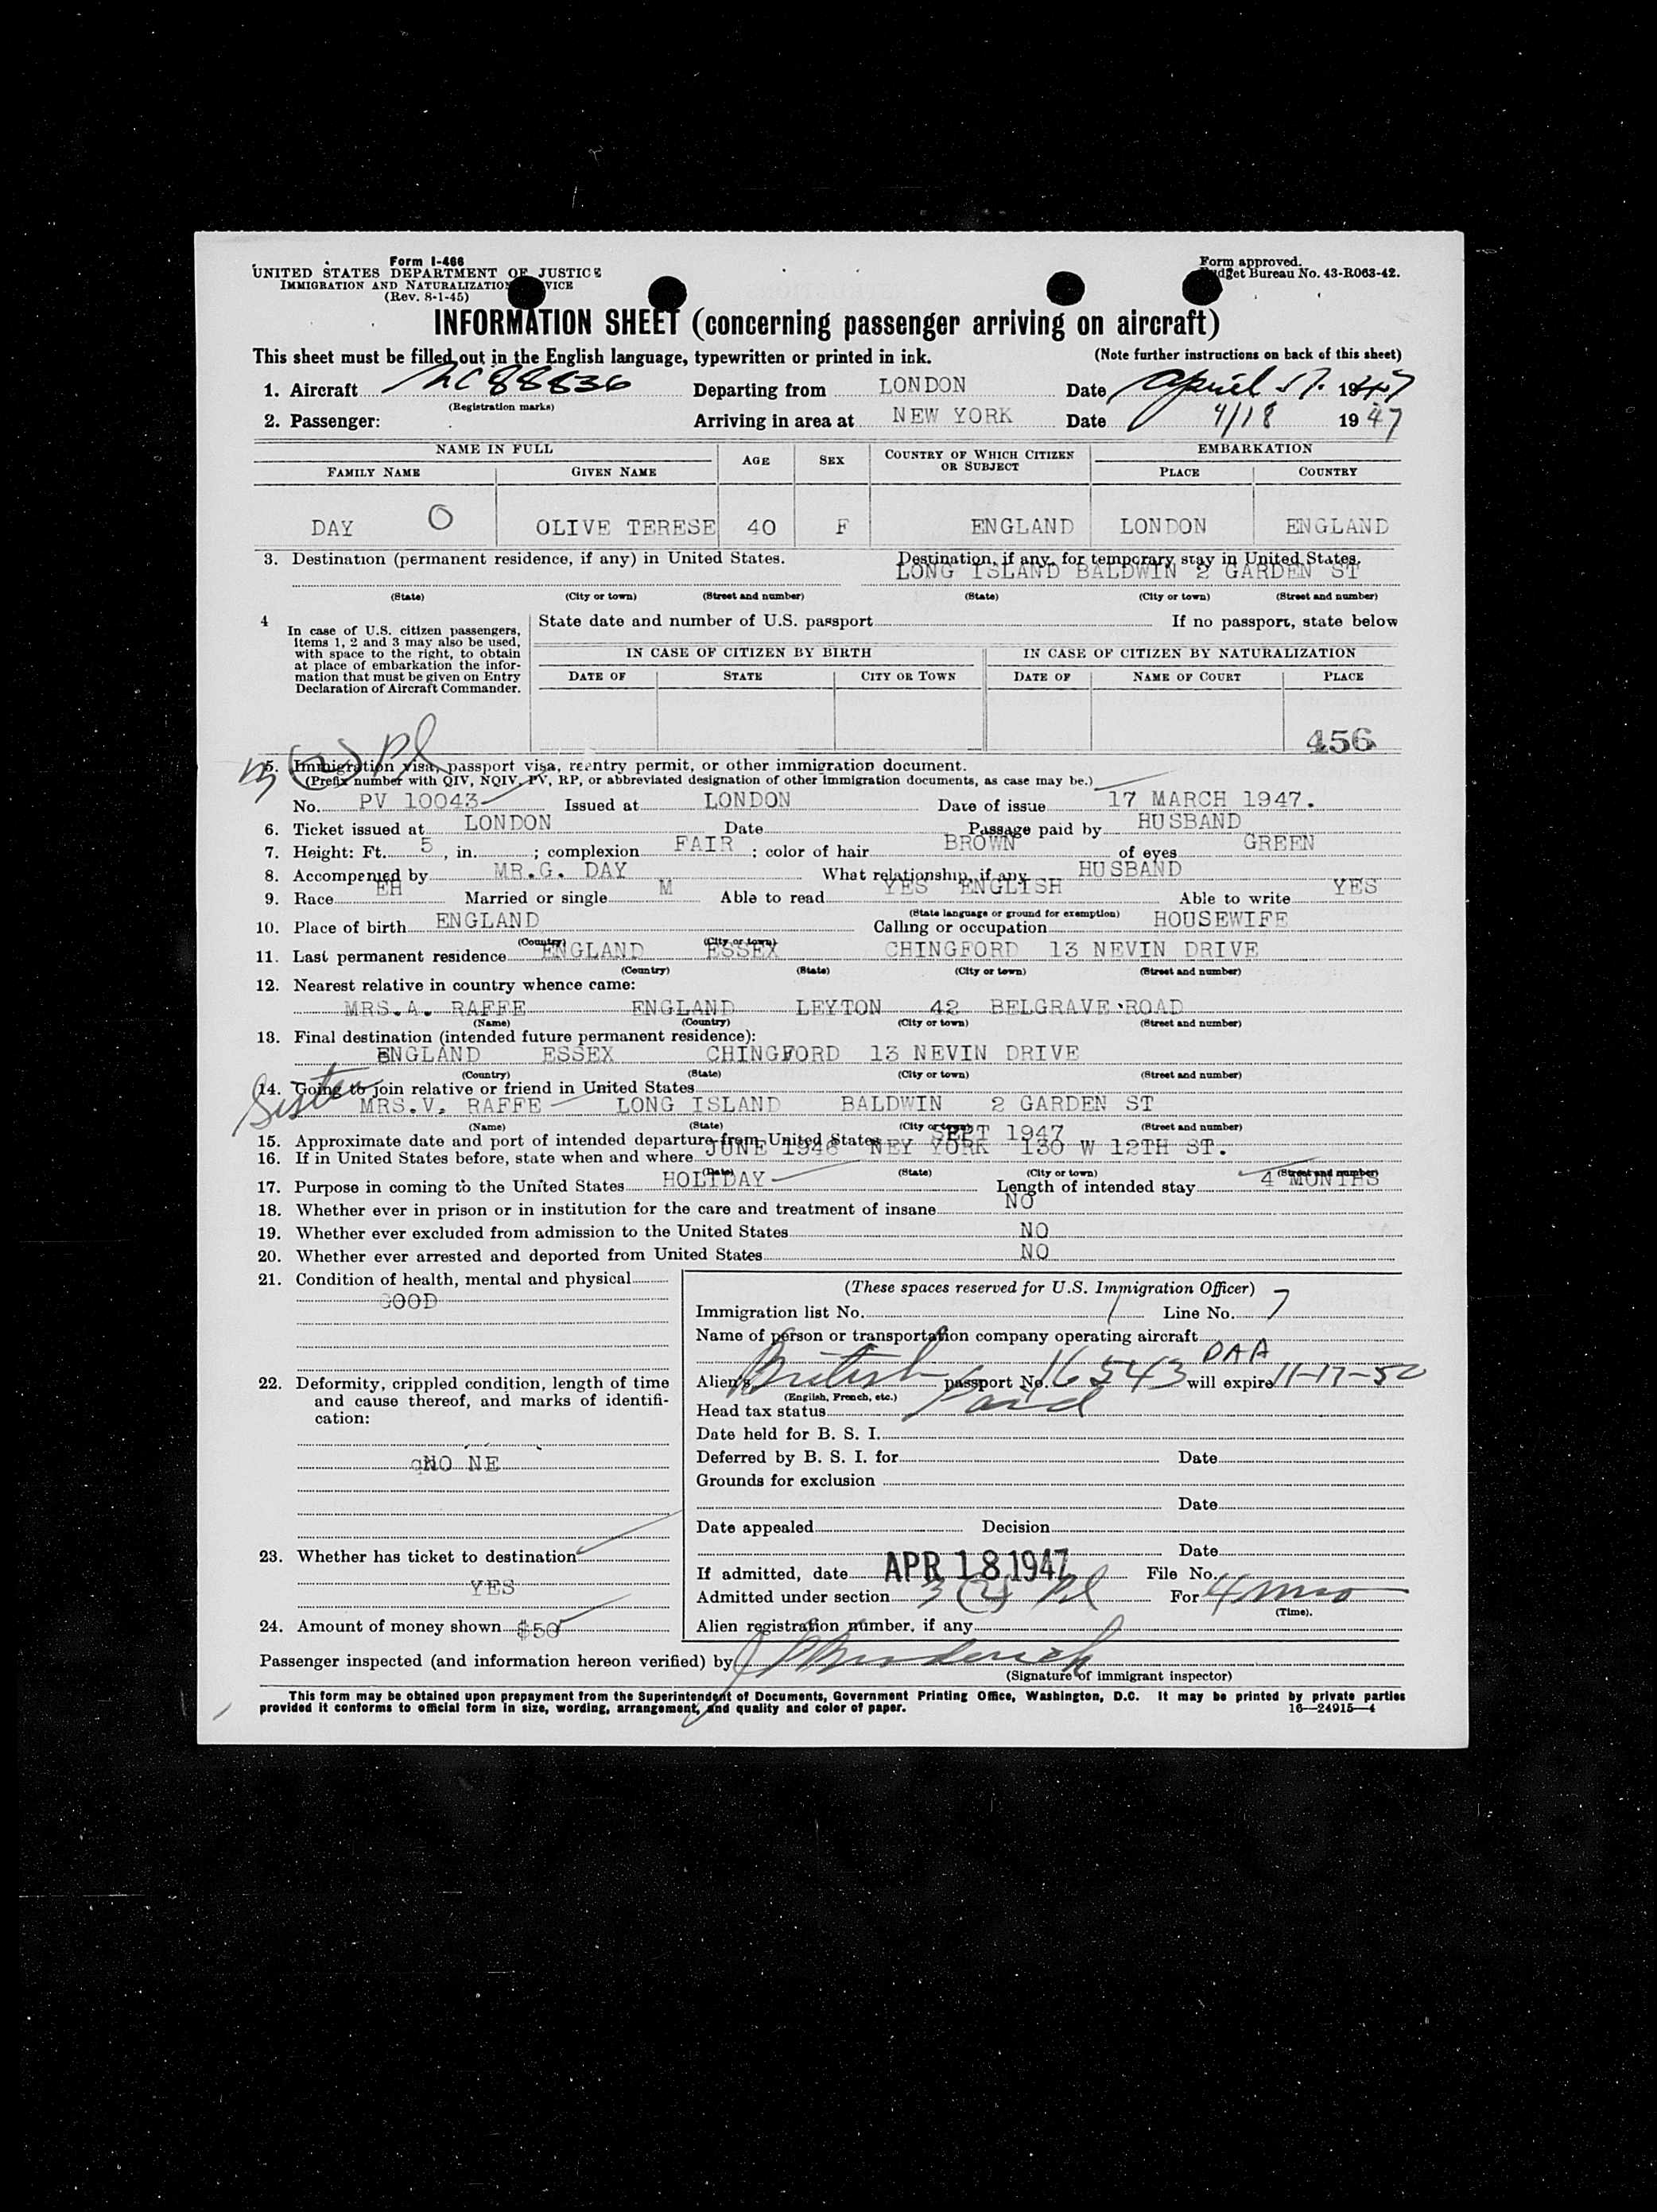 Form I-466
UNITED STATES DEPARTMENT OF JUSTICE
IMMIGRATION AND NATURALIZATION SERVICE
(Rev. 8-1-45)
Form approved.
Budget Bureau No. 43-R063-42.
INFORMATION SHEET (concerning passenger arriving on aircraft)
This sheet must be filled out in the English language, typewritten or printed in ink. (Note further instructions on back of this sheet)
1. Aircraft NC 88836 Departing from LONDON Date April 17. 1947
(Registration marks)
2. Passenger: Arriving in area at NEW YORK Date 4/18 1947
NAME IN FULL AGE SEX COUNTRY OF WHICH CITIZEN OR SUBJECT EMBARKATION
FAMILY NAME GIVEN NAME PLACE COUNTRY
DAY O OLIVE TERESE 40 F ENGLAND LONDON ENGLAND
3. Destination (permanent residence, if any) in United States. Destination, if any, for temporary stay in United States.
LONG ISLAND BALDWIN 2 GARDEN ST
(State) (City or town) (Street and number) (State) (City or town) (Street and number)
4 In case of U.S. citizen passengers, items 1, 2 and 3 may also be used, with space to the right, to obtain at place of embarkation the information that must be given on Entry Declaration of Aircraft Commander.
State date and number of U.S. passport If no passport, state below
IN CASE OF CITIZEN BY BIRTH IN CASE OF CITIZEN BY NATURALIZATION
DATE OF STATE CITY OR TOWN DATE OF NAME OF COURT PLACE
456
3 (2) Pl
5. Immigration visa, passport visa, reentry permit, or other immigration document.
(Prefix number with QIV, NQIV, PV, RP, or abbreviated designation of other immigration documents, as case may be.)
No. PV 10043 Issued at LONDON Date of issue 17 MARCH 1947.
6. Ticket issued at LONDON Date Passage paid by HUSBAND
7. Height: Ft. 5, in. ; complexion FAIR ; color of hair BROWN of eyes GREEN
8. Accompanied by MR.G. DAY What relationship, if any HUSBAND
9. Race EH Married or single M Able to read YES ENGLISH Able to write YES
(State language or ground for exemption)
10. Place of birth ENGLAND Calling or occupation HOUSEWIFE
(Country) (City or town)
11. Last permanent residence ENGLAND ESSEX CHINGFORD 13 NEVIN DRIVE
(Country) (State) (City or town) (Street and number)
12. Nearest relative in country whence came:
MRS.A. RAFFE ENGLAND LEYTON 42 BELGRAVE ROAD
(Name) (Country) (City or town) (Street and number)
13. Final destination (intended future permanent residence):
ENGLAND ESSEX CHINGFORD 13 NEVIN DRIVE
(Country) (State) (City or town) (Street and number)
14. Going to join relative or friend in United States
Sister MRS.V. RAFFE LONG ISLAND BALDWIN 2 GARDEN ST
(Name) (State) (City or town) (Street and number)
15. Approximate date and port of intended departure from United States SEPT 1947
16. If in United States before, state when and where JUNE 1946 NEY YORK 130 W 12TH ST.
(Date) (State) (City or town) (Street and number)
17. Purpose in coming to the United States HOLIDAY Length of intended stay 4 MONTHS
18. Whether ever in prison or in institution for the care and treatment of insane NO
19. Whether ever excluded from admission to the United States NO
20. Whether ever arrested and deported from United States NO
21. Condition of health, mental and physical
GOOD
22. Deformity, crippled condition, length of time and cause thereof, and marks of identification:
NO NE
23. Whether has ticket to destination
YES
24. Amount of money shown $50
(These spaces reserved for U.S. Immigration Officer)
Immigration list No. 1 Line No. 7
Name of person or transportation company operating aircraft
PAA
Alien's British passport No. 16543 will expire 11-17-50
(English, French, etc.)
Head tax status Paid
Date held for B. S. I.
Deferred by B. S. I. for Date
Grounds for exclusion
Date
Date appealed Decision
Date
If admitted, date APR 18 1947 File No.
Admitted under section 3 (2) Pl For 4 mos
(Time).
Alien registration number, if any
Passenger inspected (and information hereon verified) by
(Signature of immigrant inspector)
This form may be obtained upon prepayment from the Superintendent of Documents, Government Printing Office, Washington, D.C. It may be printed by private parties
provided it conforms to official form in size, wording, arrangement, and quality and color of paper. 16—24915—4